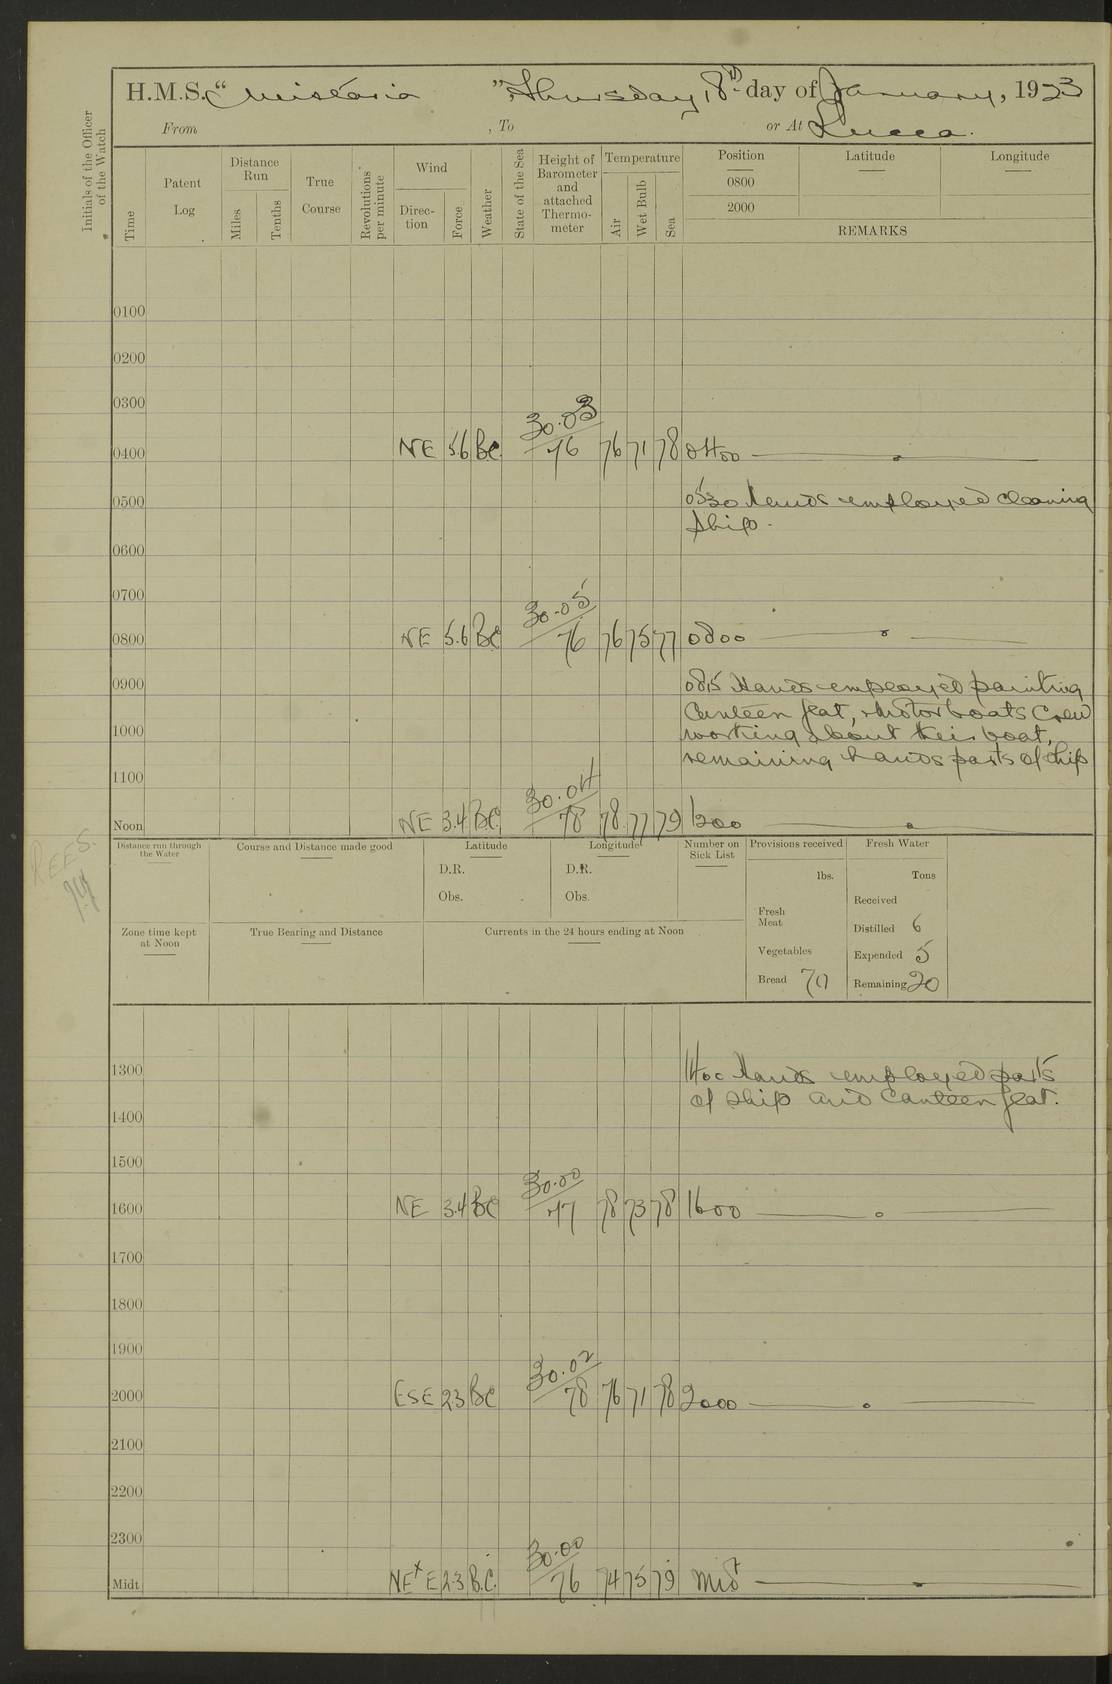 H.M.S. "Wistaria", Thursday, 18th day of January, 1923
From , To or At Lucea.
Initials of the Officer of the Watch
Time
Patent Log
Distance Run
Miles
Tenths
True Course
Revolutions per minute
Wind
Direction
Force
Weather
State of the Sea
Height of Barometer and attached Thermometer
Temperature
Air
Wet Bulb
Sea
Position
Latitude
Longitude
0800
2000
REMARKS
0100
0200
0300
0400 NE 5.6 BC 30.03 76 76 71 78 0400
0500 0530 Hands employed cleaning
ship.
0600
0700
0800 NE 5.6 BC 30.05 76 76 75 77 0800
0900 0815 Hands employed painting
Canteen flat, Motorboats crew
1000 working about their boat,
remaining hands parts of ship
1100
Noon NE 3.4 B.C. 30.04 78 78 77 79 1200
Distance run through the Water
Course and Distance made good
Latitude
D.R.
Obs.
Longitude
D.R.
Obs.
Number on Sick List
Provisions received
lbs.
Fresh Meat
Vegetables
Bread 70
Fresh Water
Tons
Received
Distilled 6
Expended 5
Remaining 20
Zone time kept at Noon
True Bearing and Distance
Currents in the 24 hours ending at Noon
REES.
1300 1400 Hands employed parts
of ship and Canteen flat.
1400
1500
1600 NE 3.4 BC 30.00 77 78 73 78 1600
1700
1800
1900
2000 ESE 23 BC 30.02 78 76 71 78 2000
2100
2200
2300
Midt. NExE 23 B.C. 30.00 76 74 75 79 Midt